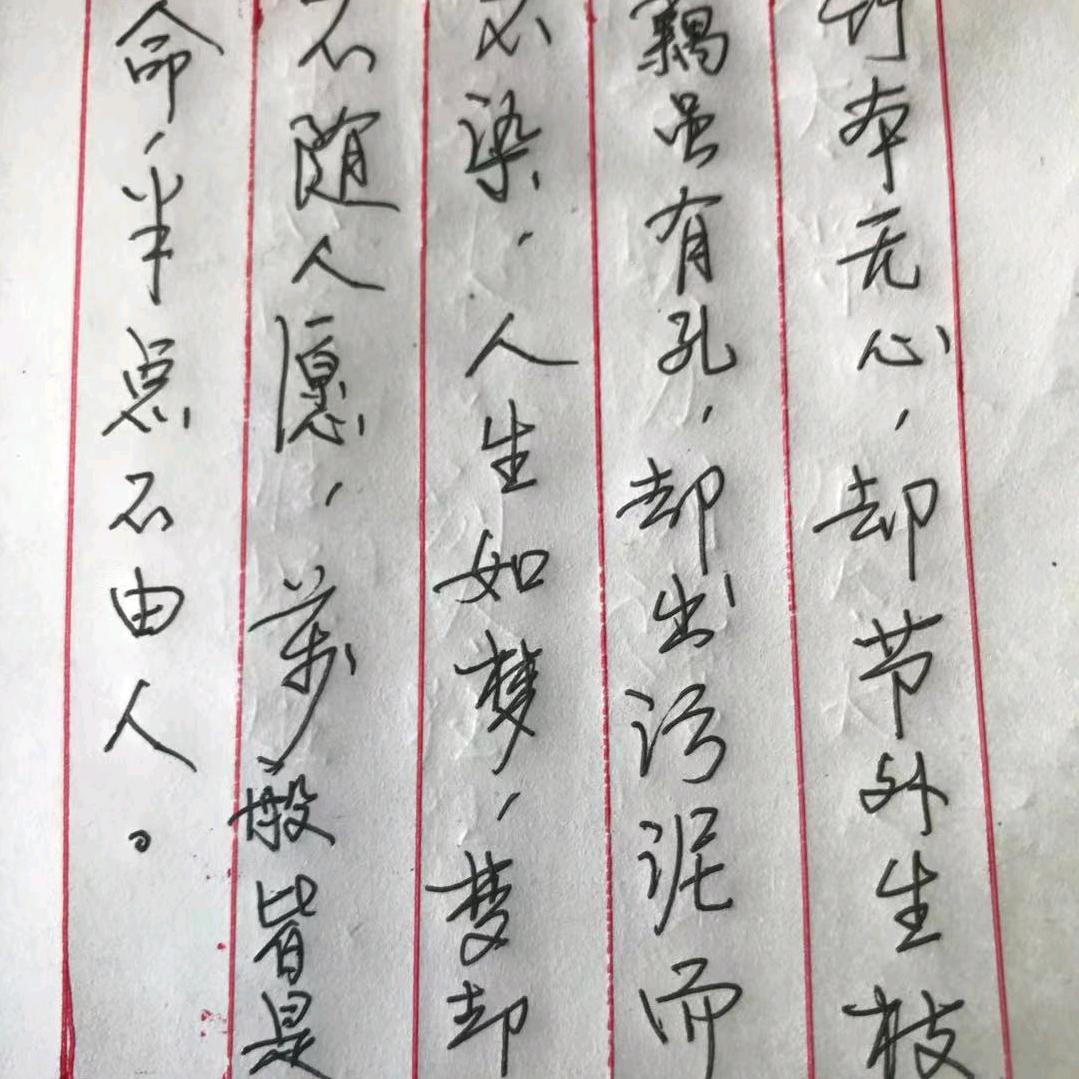 竹本无心，却节外生枝
藕虽有孔，却出污泥而
不染，人生如梦，梦却
不随人愿，万般皆是
命，半点不由人。